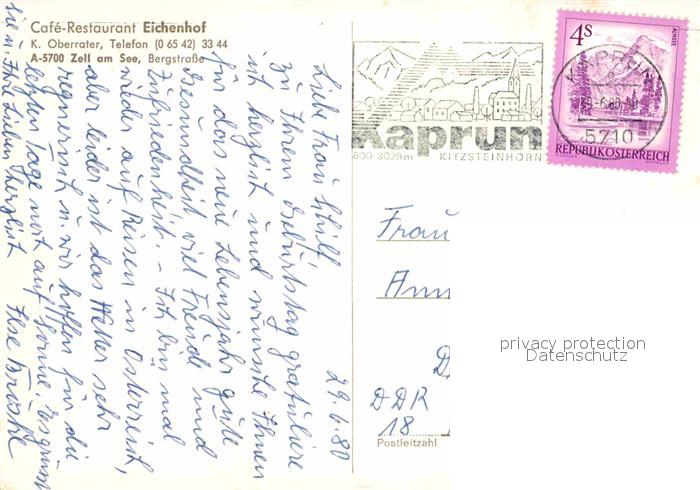 Café-Restaurant Eichenhof
K. Oberrater, Telefon (0 65 42) 33 44
A-5700 Zell am See, Bergstraße
29.6.80
Liebe Frau
Zu Ihrem Geburtstag gratuliere
ich herzlich und wünsche Ihnen
für das neue Lebensjahr gute
Gesundheit viel Freude und
Zufriedenheit. - Ich bin mal
wieder auf Reisen in Österreich,
aber leider ist das Wetter sehr
regnerisch u. wir hoffen für die
letzten Tage noch auf Sonne. Es grüßt
Sie u. Ihre Lieben herzlichst Ilse
4s
ALMSEE
KAPRUN
5710
REPUBLIK ÖSTERREICH
Kaprun
800-3029m KITZSTEINHORN
Frau
Ann
D
DDR
18
Postleitzahl
privacy protection
Datenschutz